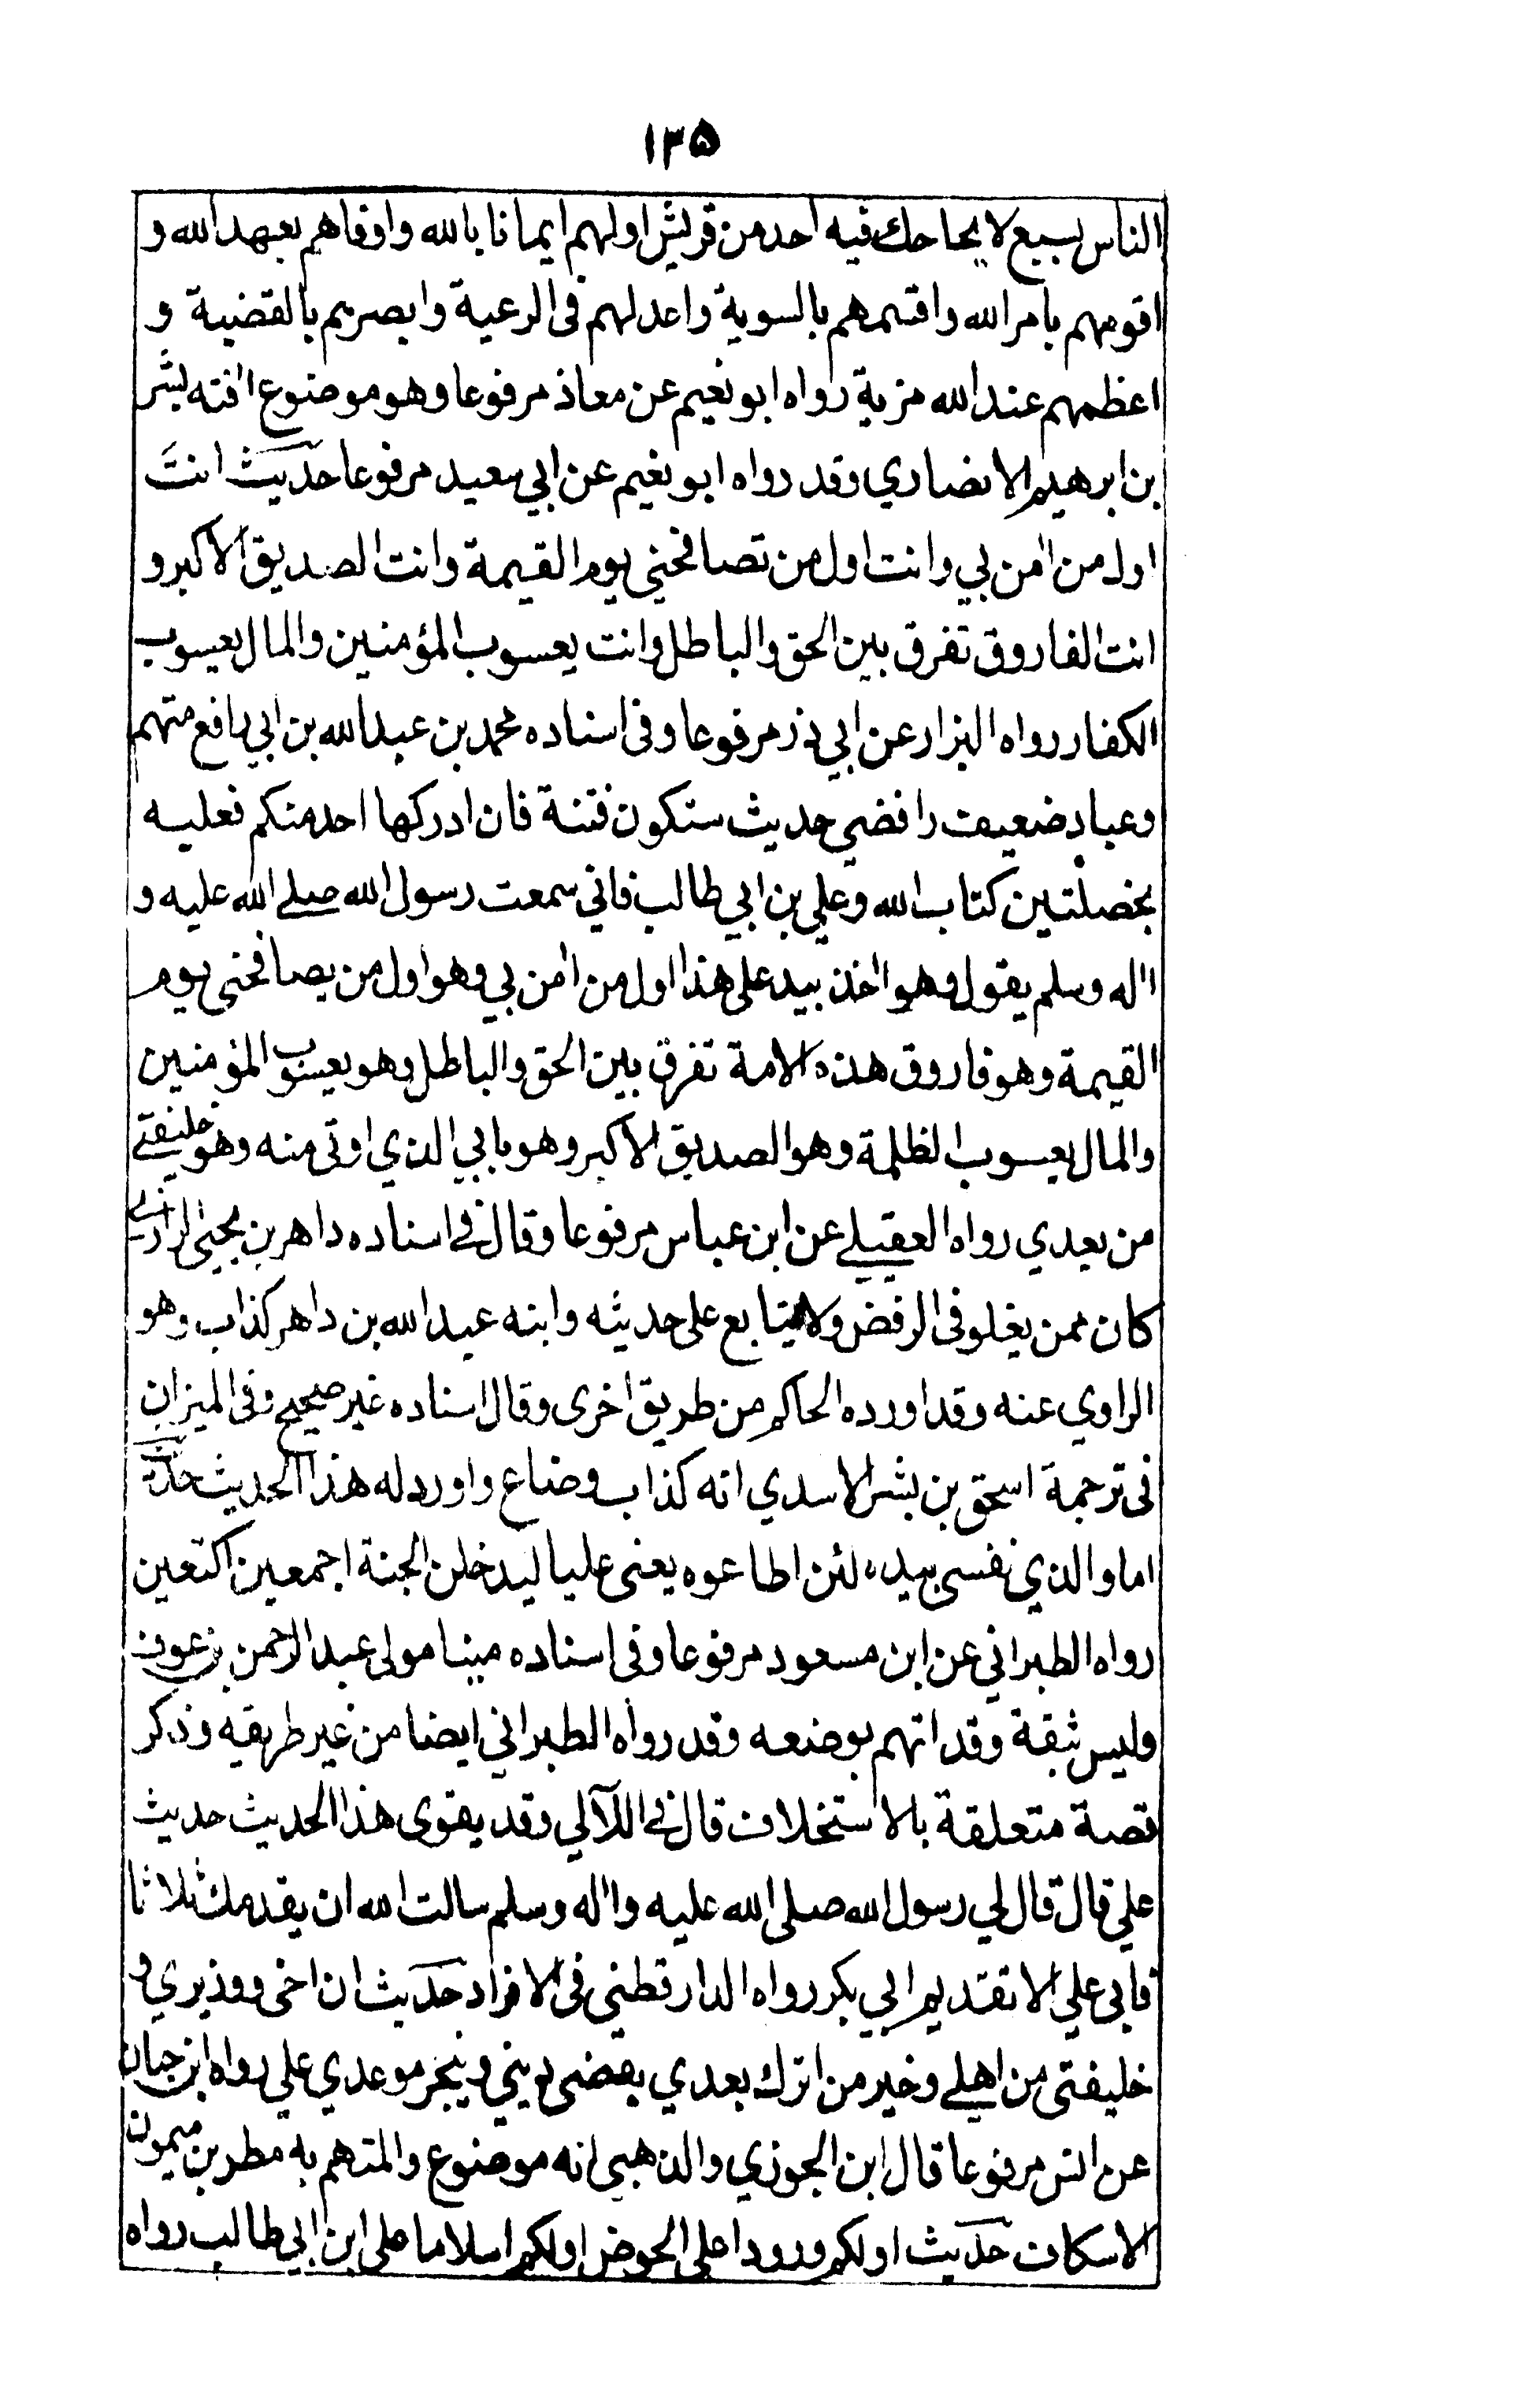 ١٣٥
الناس بسبع لا يحاجك فيه احد من قريش اولهم ايمانا بالله واوفاهم بعهد الله و
اقومهم بامر الله واقسمهم بالسوية واعدلهم فى الرعية وابصرهم بالقضية و
اعظمهم عند الله مزية رواه ابو نعيم عن معاذ مرفوعا وهو موضوع اٰفته بشر
بن ابرهيم الانصاري وقد رواه ابو نعيم عن ابي سعيد مرفوعا حديث انت
اول من اٰمن بي وانت اول من تصافحني يوم القيمة وانت الصديق الاكبر و
انت الفاروق تفرق بين الحق والباطل وانت يعسوب المؤمنين والمال يعسوب
الكفار رواه البزار عن ابي ذر مرفوعا وفى اسناده محمد بن عبد الله بن ابي رافع متهم
وعباد ضعيف رافضي حديث ستكون فتنة فان ادركها احد منكم فعليه
بخصلتين كتاب الله وعلي بن ابي طالب فاني سمعت رسول الله صلے الله عليه و
اٰله وسلم يقول وهو اٰخذ بيد على هذا اول من اٰمن بي وهو اول من يصافحنى يوم
القيمة وهو فاروق هذه الامة تفرق بين الحق والباطل وهو يعسوب المؤمنين
والمال يعسوب الظلمة وهو الصديق الاكبر وهو بابي الذي اوتى منه وهو خليفتے
من بعدي رواه العقيلے عن ابن عباس مرفوعا وقال فے اسناده داهر بن يحيىٰ الرازے
كان ممن يغلو فى الرفض ولا يتابع على حديثه وابنه عبد الله بن داهر كذاب وهو
الراوي عنه وقد اورده الحاكم من طريق اخرى وقال اسناده غير صحيح وفى الميزان
فى ترجمة اسحق بن بشر الاسدي انه كذاب وضاع واورد له هذا الحديث حديث
اما والذي نفسى بيده لئن اطاعوه يعنى عليا ليدخلن الجنة اجمعين اكتعين
رواه الطبراني عن ابن مسعود مرفوعا وفى اسناده مينا مولى عبد الرحمن بن عوف
وليس ثبقة وقد اتهم بوضعه وقد رواه الطبراني ايضا من غير طريقه وذكر
قصة متعلقة بالاستخلاف قال فے اللآلي وقد يقوى هذا الحديث حديث
علي قال قال لي رسول الله صلى الله عليه واٰله وسلم سالت الله ان يقدمك ثلاثا
فابى علي الا تقديم ابي بكر رواه الدارقطني فى الافراد حديث ان اخى ووزيري و
خليفتى من اهلے وخير من اترك بعدي يقضى ديني وينجز موعدي علي رواه ابن حبان
عن انس مرفوعا قال ابن الجوزي والذهبي انه موضوع والمتهم به مطر بن ميمون
الاسكاف حديث اولكم ورودا على الحوض اولكم اسلاما على ابن ابي طالب رواه